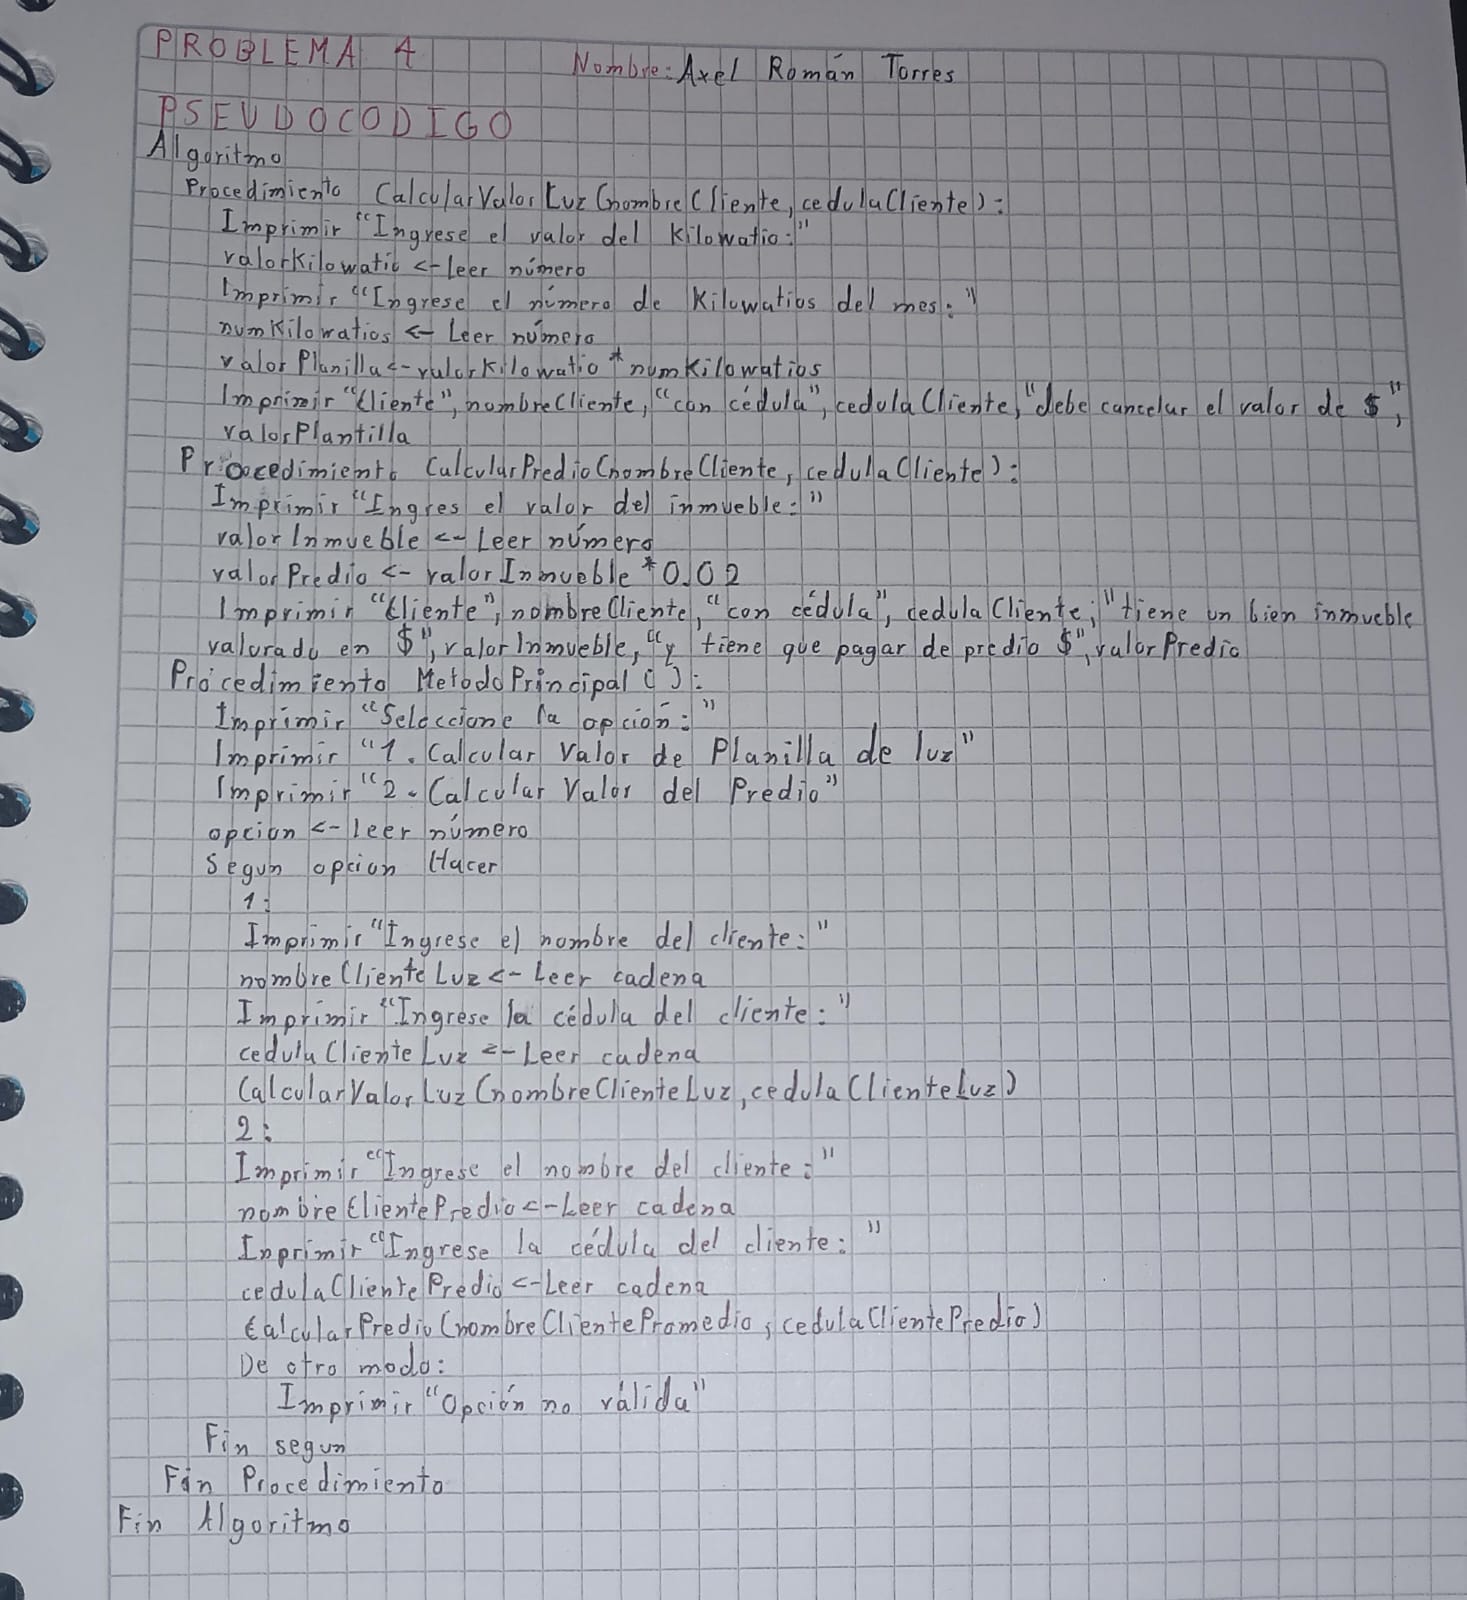 PROBLEMA 4
Nombre: Axel Román Torres
PSEUDOCODIGO
Algoritmo
Procedimiento CalcularValorLuz(nombreCliente, cedulaCliente):
Imprimir "Ingrese el valor del Kilowatio:"
valorKilowatio <- leer número
Imprimir "Ingrese el número de Kilowatios del mes:"
numKilowatios <- Leer número
valorPlanilla <- valorKilowatio * numKilowatios
Imprimir "Cliente", nombreCliente, "con cédula", cedulaCliente, "debe cancelar el valor de $",
valorPlantilla
Procedimiento CalcularPredio(nombreCliente, cedulaCliente):
Imprimir "Ingres el valor del inmueble:"
valorInmueble <- Leer número
valorPredio <- valorInmueble * 0.02
Imprimir "Cliente", nombreCliente, "con cédula", cedulaCliente, "tiene un bien inmueble
valorado en $", valorInmueble, "y tiene que pagar de predio $", valorPredio
Procedimiento MetodoPrincipal():
Imprimir "Seleccione la opción:"
Imprimir "1. Calcular Valor de Planilla de luz"
Imprimir "2. Calcular Valor del Predio"
opcion <- leer número
Segun opcion Hacer
1:
Imprimir "Ingrese el nombre del cliente:"
nombreClienteLuz <- Leer cadena
Imprimir "Ingrese la cédula del cliente:"
cedulaClienteLuz <- Leer cadena
CalcularValorLuz(nombreClienteLuz, cedulaClienteLuz)
2:
Imprimir "Ingrese el nombre del cliente:"
nombreClientePredio <- Leer cadena
Inprimir "Ingrese la cédula del cliente:"
cedulaClientePredio <- Leer cadena
CalcularPredio(nombreClientePromedio, cedulaClientePredio)
De otro modo:
Imprimir "Opción no válida"
Fin segun
Fin Procedimiento
Fin Algoritmo